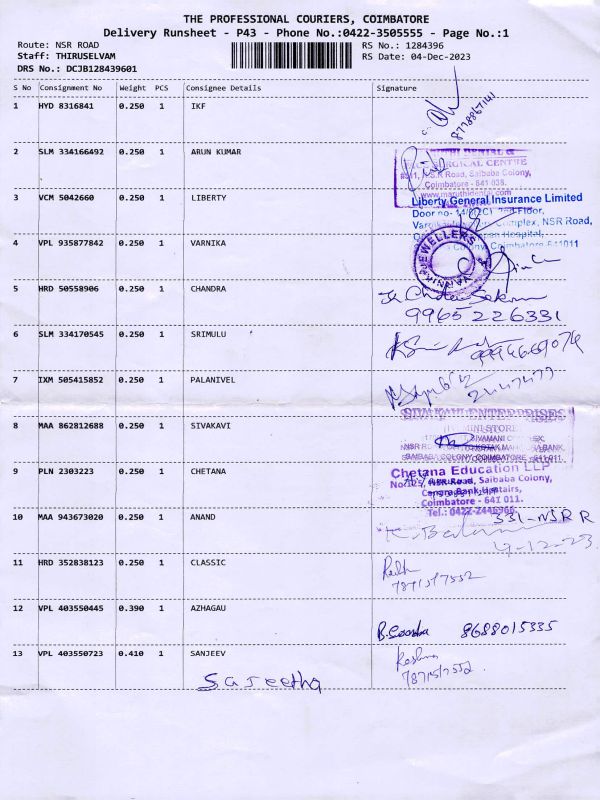 THE PROFESSIONAL COURIERS, COIMBATORE
Delivery Runsheet - P43 - Phone No.:0422-3505555 - Page No.:1
Route: NSR ROAD
Staff: THIRUSELVAM
DRS No.: DCJB128439601
RS No.: 1284396
RS Date: 04-Dec-2023
S No Consignment No Weight PCS Consignee Details Signature
1 HYD 8316841 0.250 1 IKF
8778867141
2 SLM 334166492 0.250 1 ARUN KUMAR
DENTAL &
SURGICAL CENTRE
N.S.R Road, Saibaba Colony,
Coimbatore - 641 038.
www.maruthidental.com
3 VCM 5042660 0.250 1 LIBERTY
Liberty General Insurance Limited
Door no- Floor,
Complex, NSR Road,
Hospital,
Colony, Coimbatore 641011
4 VPL 935877842 0.250 1 VARNIKA
JEWELLERS
5 HRD 50558906 0.250 1 CHANDRA
9965226331
6 SLM 334170545 0.250 1 SRIMULU
9994669074
7 IXM 505415852 0.250 1 PALANIVEL
8 MAA 862812688 0.250 1 SIVAKAVI
ENTERPRISES
MINI STORE
SIVAMANI
BANK,
COLONY, COIMBATORE - 641 011.
9 PLN 2303223 0.250 1 CHETANA
Chetana Education LLP
NSR Road, Saibaba Colony,
Bank Upstairs,
Coimbatore - 641 011.
Tel.: 0422-2446966.
10 MAA 943673020 0.250 1 ANAND
331-NSR R
4-12-23
11 HRD 352838123 0.250 1 CLASSIC
7871517552
12 VPL 403550445 0.390 1 AZHAGAU
8688015335
13 VPL 403550723 0.410 1 SANJEEV
Sajeetha
Reshma
7871517552